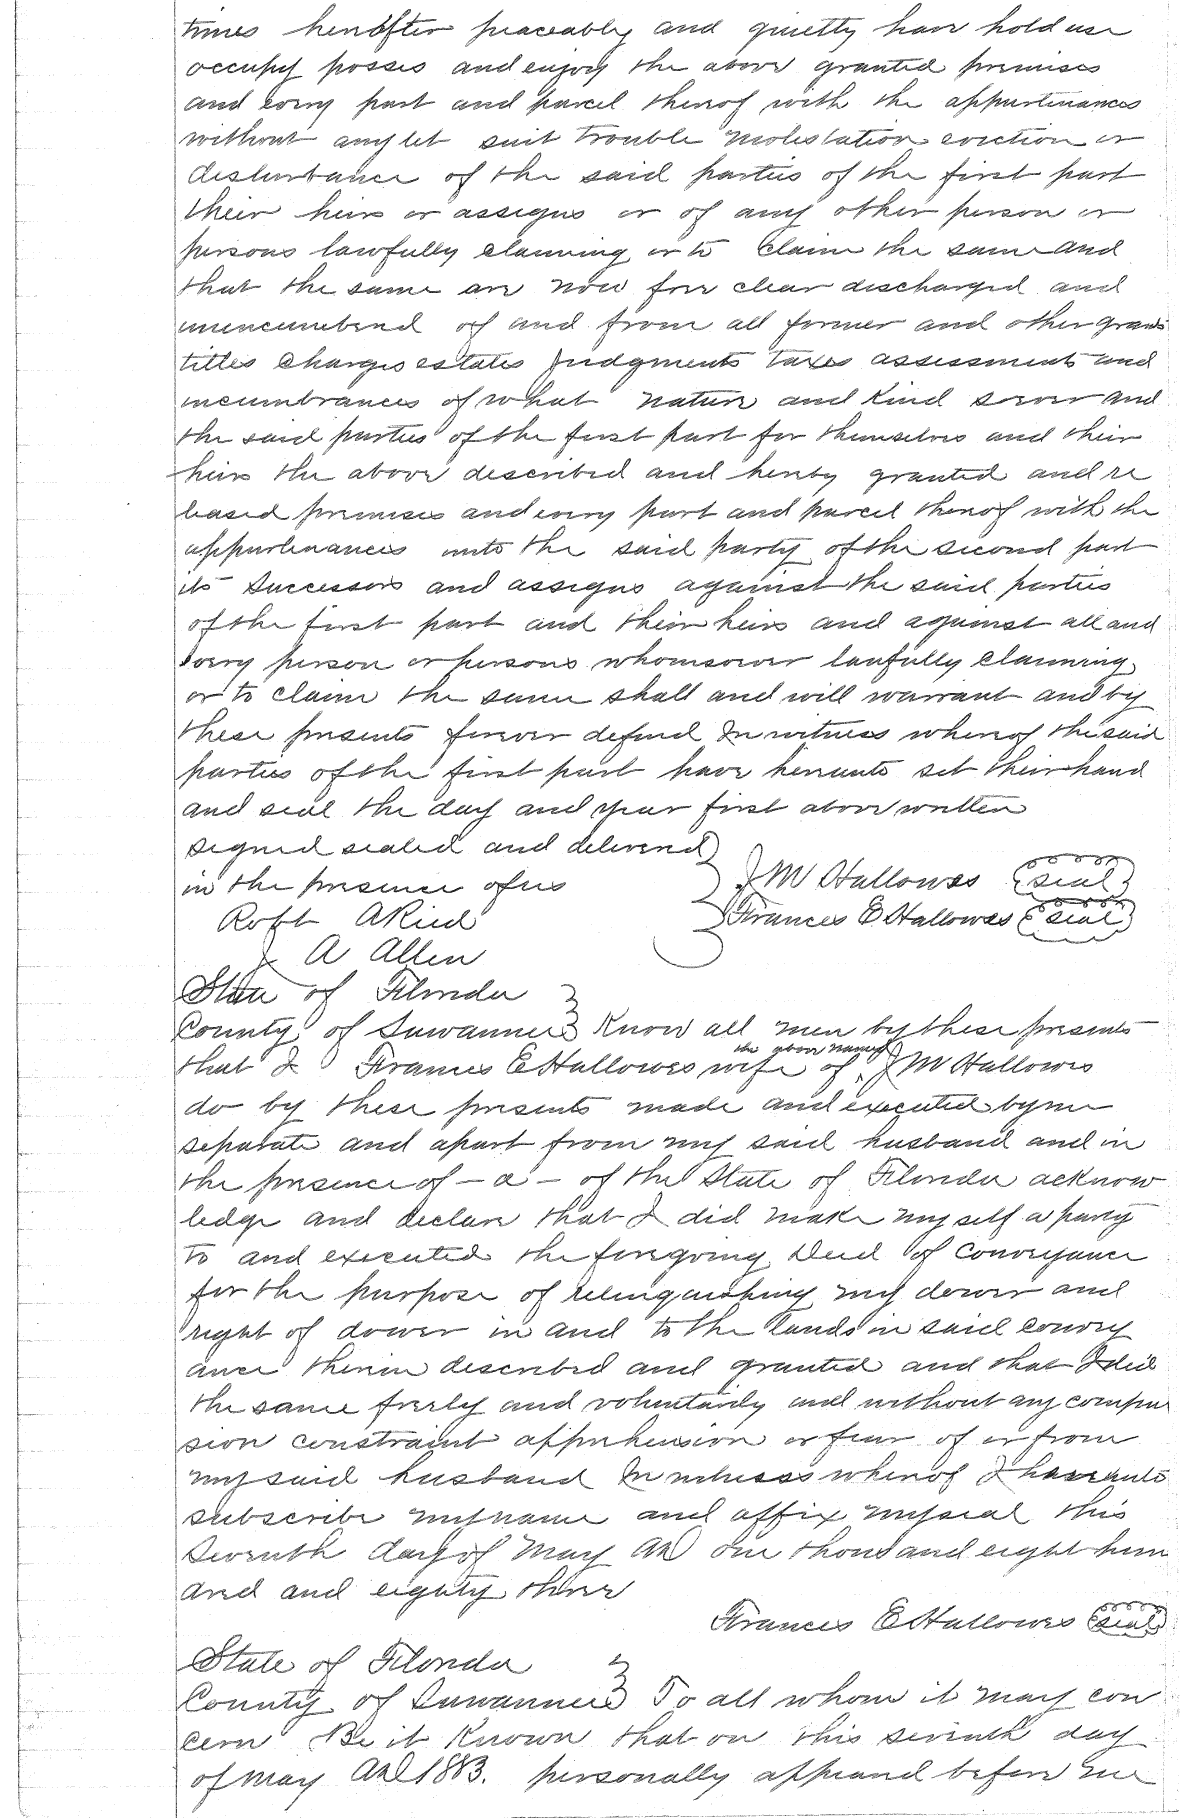 times hereafter peaceably and quietly have hold use
occupy posses and enjoy the above granted premises
and every part and parcel thereof with the appurtenances
without any let suit trouble molestation eviction or
disturbance of the said parties of the first part
their heirs or assigns or of any other person or
persons lawfully claiming or to claim the same and
that the same are now free clear discharged and
unencumbered of and from all former and other grants
titles charges estates judgments taxes assessments and
incumbrances of what nature and kind soever and
the said parties of the first part for themselves and their
heirs the above described and hereby granted and re
leased premises and every part and parcel thereof with the
appurtenances unto the said party of the second part
its successors and assigns against the said parties
of the first part and their heirs and against all and
every person or persons whomsoever lawfully claiming
or to claim the same shall and will warrant and by
these presents forever defend In witness whereof the said
parties of the first part have hereunto set their hand
and seal the day and year first above written
signed sealed and delivered
in the presence of us J M Hallowes (seal)
Robt A Reid Frances E Hallowes (seal)
J A Allen
State of Florida
County of Suwannee Know all men by these presents
that I Frances E Hallowes wife of the above named J M Hallowes
do by these presents made and executed by me
separate and apart from my said husband and in
the presence of - a - of the State of Florida acknow
ledge and declare that I did make myself a party
to and executed the foregoing Deed of Conveyance
for the purpose of relinquishing my dower and
right of dower in and to the lands in said convey
ance therein described and granted and that I did
the same freely and voluntarily and without any compul
sion constraint apprehension or fear of or from
my said husband In witness whereof I
subscribe my name and affix my seal this
Seventh day of May AD one thousand eight hun
dred and eighty three
Frances E Hallowes (seal)
State of Florida
County of Suwannee To all whom it may con
cern Be it Known that on this seventh day
of May AD 1883. personally appeared before me